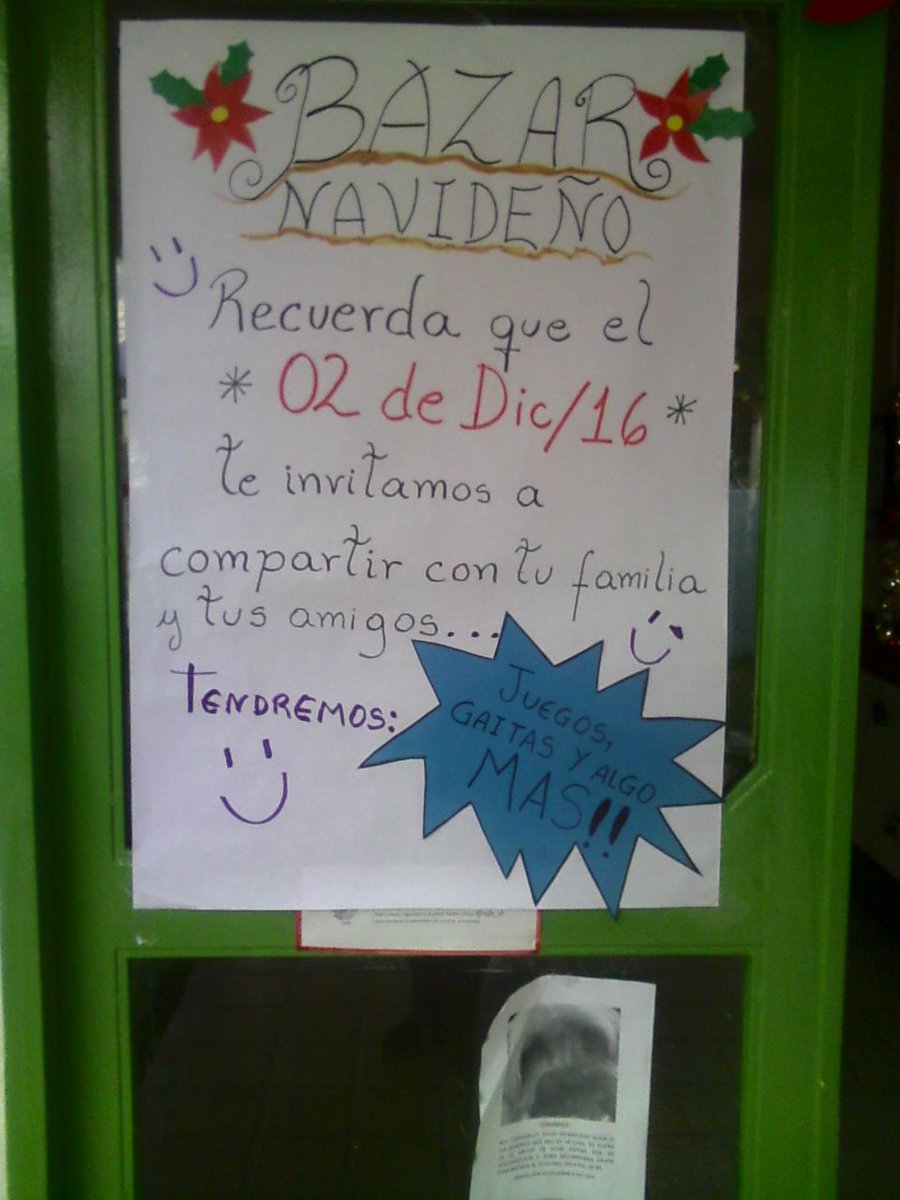 BAZAR
NAVIDEÑO
Recuerda que el
* 02 de Dic/16 *
te invitamos a
compartir con tu familia
y tus amigos...
TENDREMOS:
JUEGOS,
GAITAS Y ALGO
MAS!!